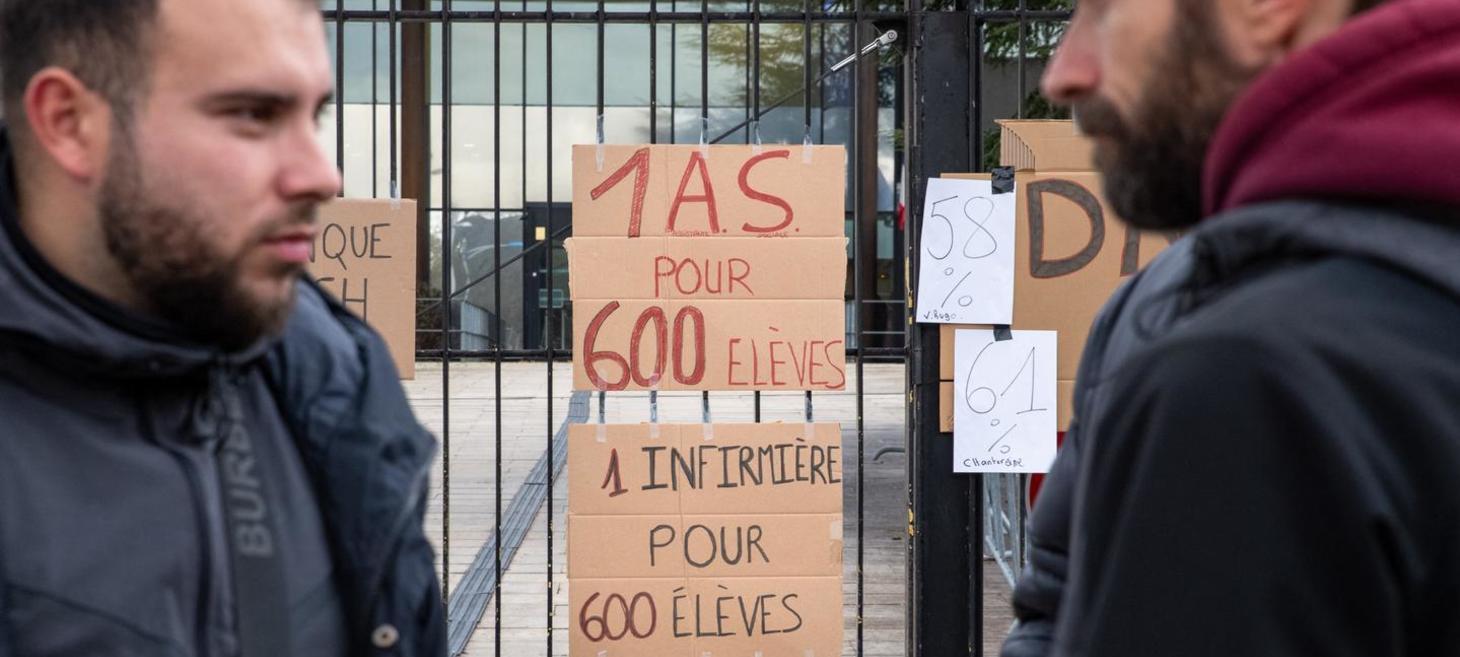 QUE
1 A.S.
ASSISTANTE SOCIALE
POUR
600 ELÈVES
1 INFIRMIÈRE
POUR
600 ÉLÈVES
58
%
V. Hugo
61
%
Chanterelle
BURB